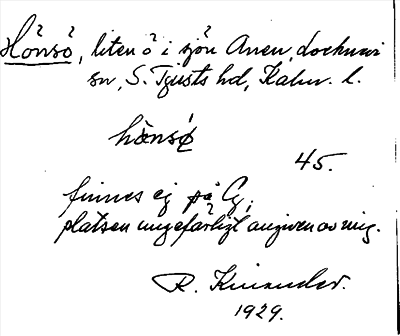 Hönsö, liten ö i sjön Anen, Locknevi
sn, S. Tjusts hd, Kalm. l.
hönsö
45.
finnes ej på G;
platsen ungefärligt angiven av mig.
R. Kinander.
1929.